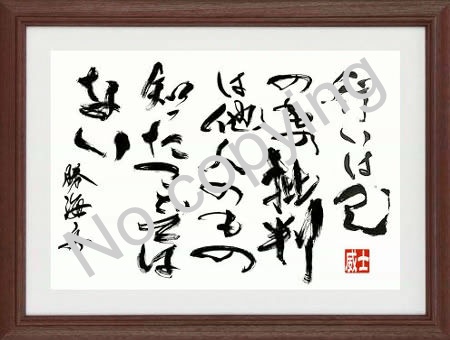 行いは己
の事批判
は他人のもの
知ったことでは
ない
勝海舟
威士
No copying